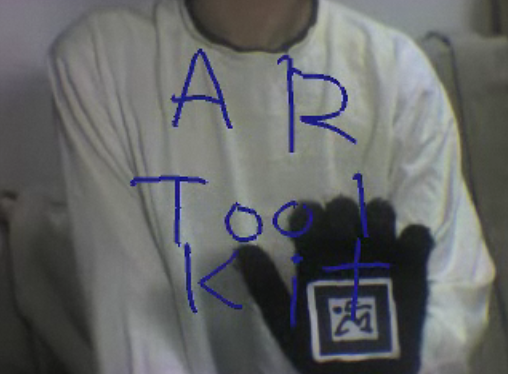 AR
Tool
Kit